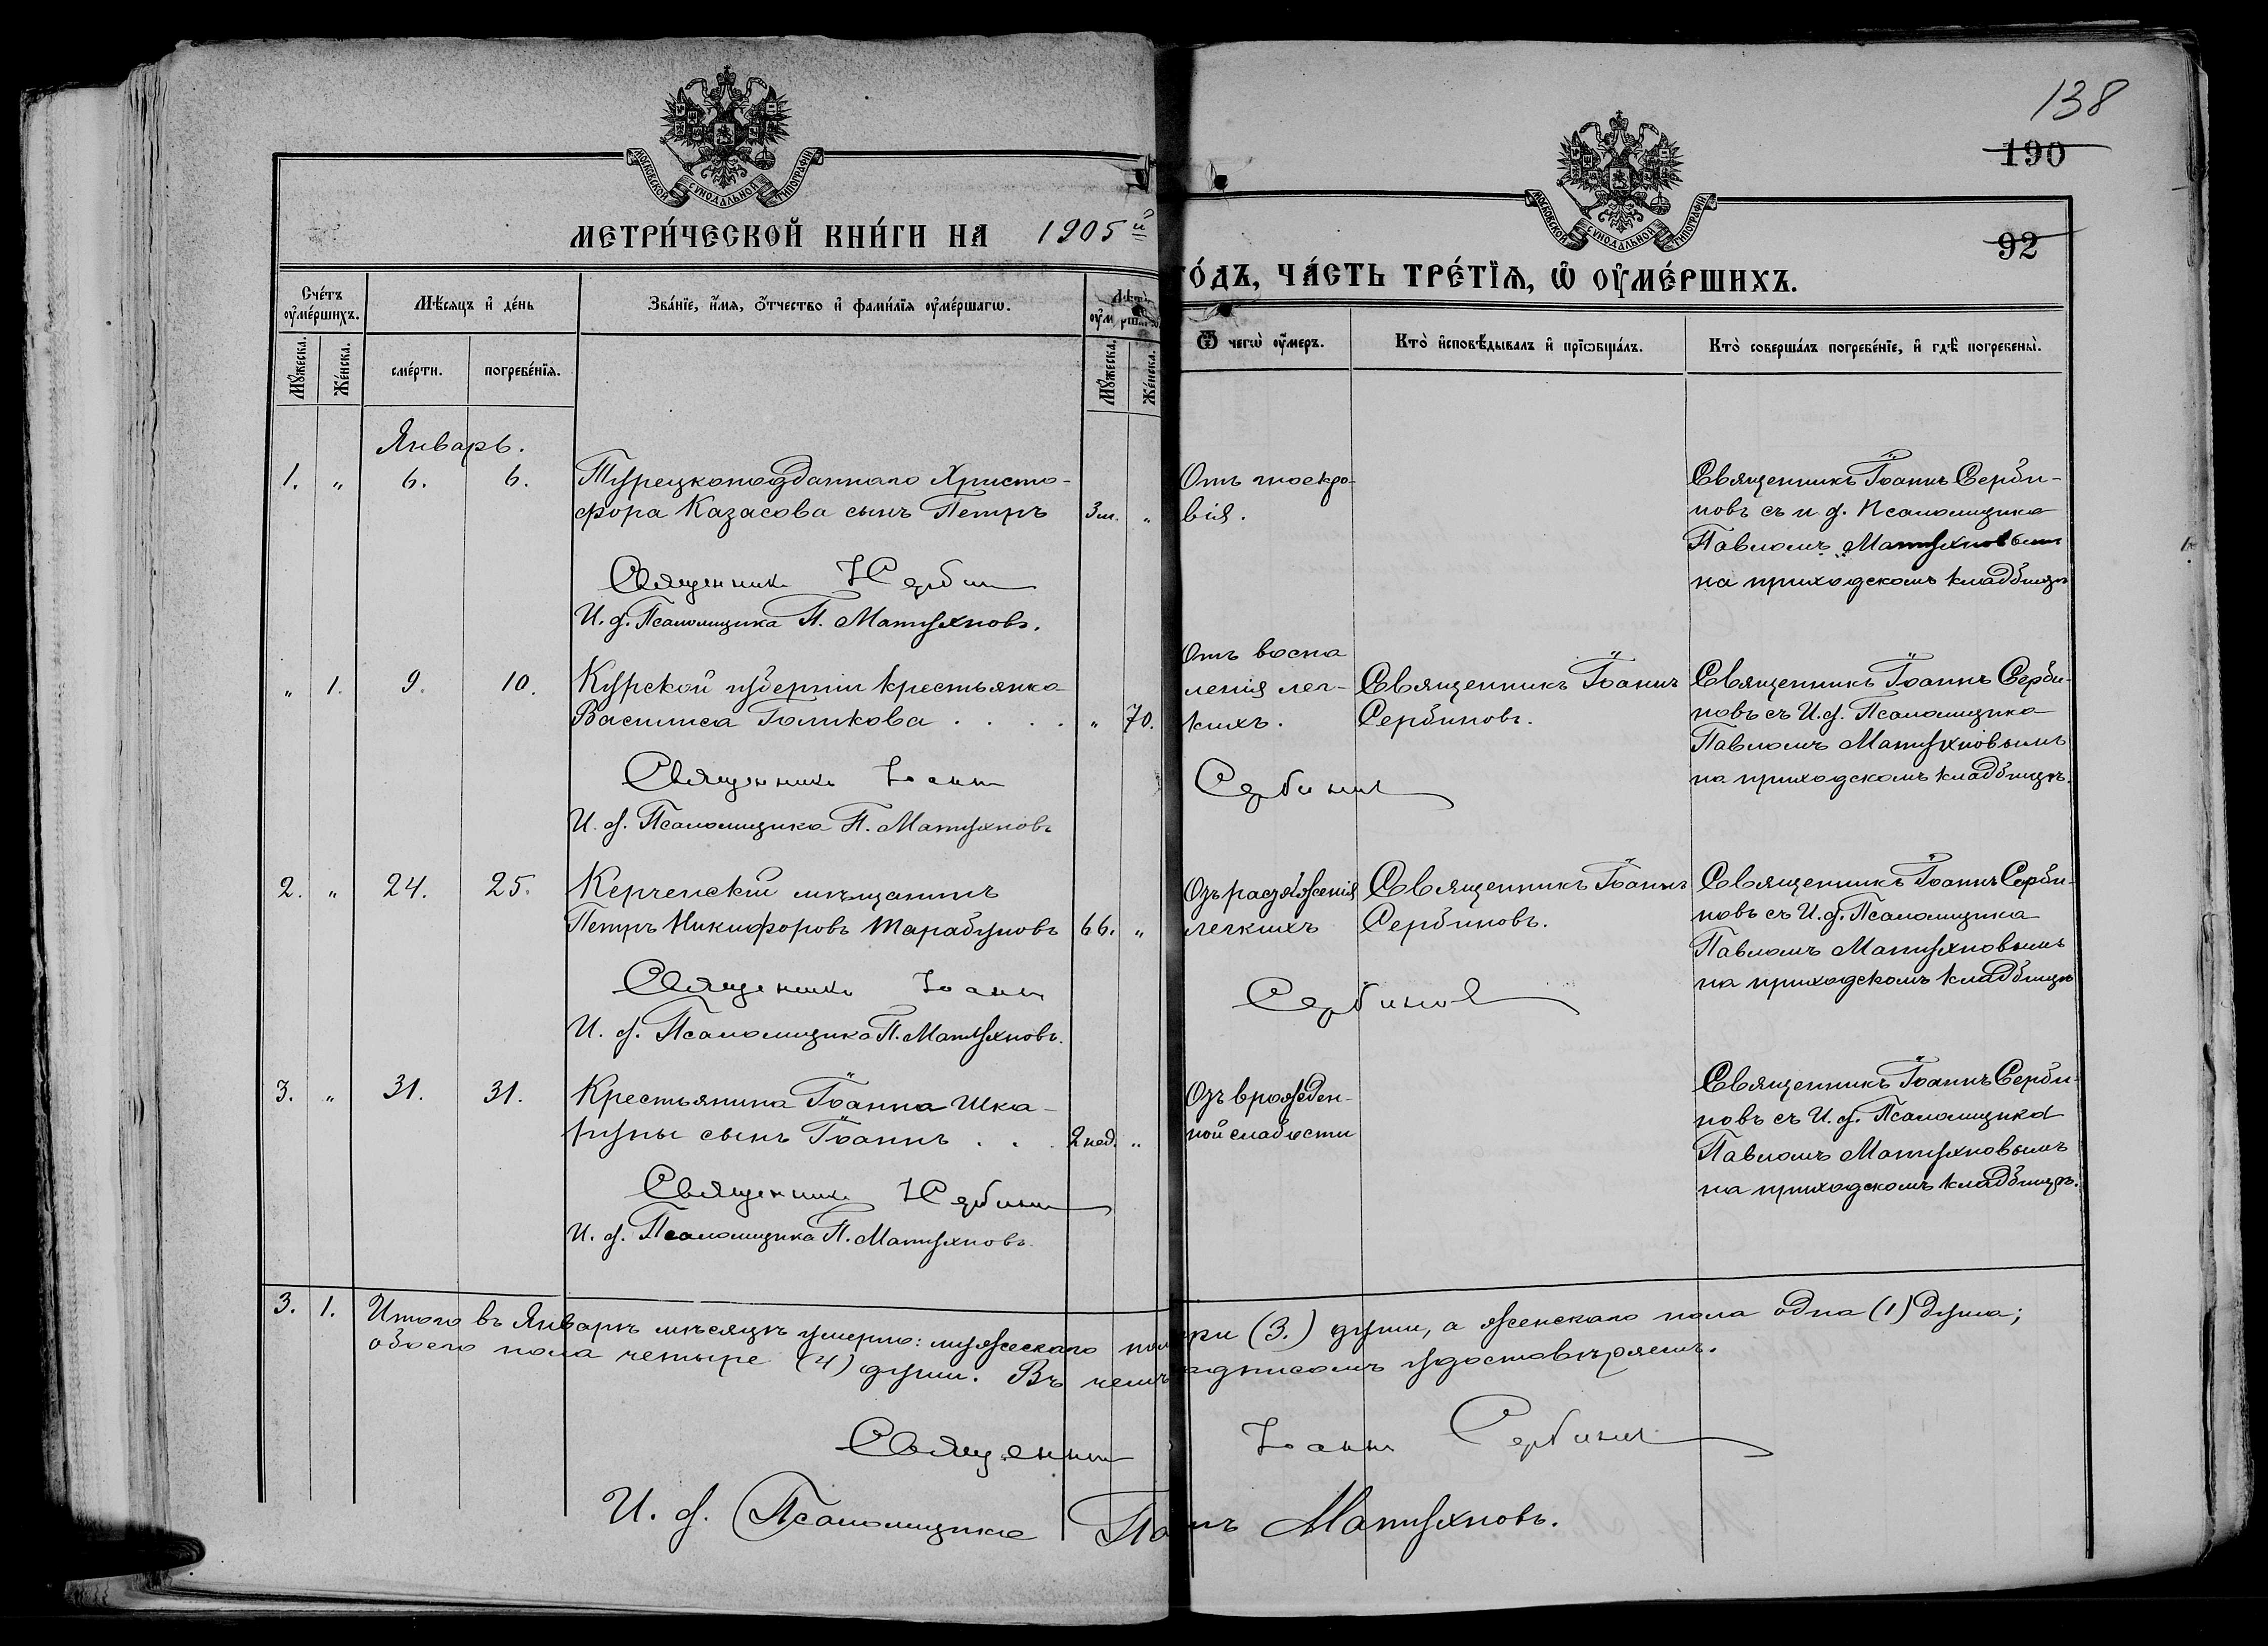 138
190
92
МОСКОВСКОЙ СУНОДАЛЬНОЙ ТИПОГРАФІИ
МОСКОВСКОЙ СУНОДАЛЬНОЙ ТИПОГРАФІИ
МЕТРИ́ЧЕСКОЙ КНИ́ГИ НА 1905й
ГО́ДЪ, ЧА́СТЬ ТРЕ́ТЇѦ, Ѽ ОУ҆МЕ́РШИХЪ.
Сче́тъ оу҆ме́ршихъ.
Мꙋ́жеска.
Же́нска.
Мѣ́сѧцъ и҆ де́нь
сме́рти.
погребе́нїѧ.
Зва́нїе, и҆́мѧ, ѻ҆́тчество и҆ фами́лїѧ оу҆ме́ршагѡ.
Мꙋ́жеска.
Же́нска.
Ѿ чегѡ̀ оу҆́меръ.
Кто̀ и҆сповѣ́дывалъ и҆ прїѡбща́лъ.
Кто̀ соверша́лъ погребе́нїе, и҆ гдѣ̀ погребены̀.
Январь.
1. " 6. 6. Турецкоподданнаго Христо-
фора Казасова сынъ Петръ 3м. "
Священникъ
И. д. Псаломщика П. Матухновъ.
вія.
Священникъ Іоаннъ Серби-
новъ съ и д. Псаломщика
Павломъ Матухновымъ
на приходскомъ кладбищѣ
" 1. 9. 10. Курской губерніи крестьянка
Василиса Голикова . . . . " 70.
Священникъ Іоаннъ Сербиновъ
И. д. Псаломщика П. Матухновъ
Отъ воспа
ленія лег-
кихъ.
Священникъ Іоаннъ
Сербиновъ.
Священникъ Іоаннъ Серби-
новъ съ И. д. Псаломщика
Павломъ Матухновымъ
на приходскомъ кладбищѣ.
2. " 24. 25. Керченскій мѣщанинъ
Петръ Никифоровъ Тарабуновъ 66. "
Священникъ Іоаннъ Сербиновъ
И. д. Псаломщика П. Матухновъ.
легкихъ
Священникъ Іоаннъ
Сербиновъ.
Священникъ Іоаннъ Серби-
новъ съ И. д. Псаломщика
Павломъ Матухновымъ
на приходскомъ кладбищѣ
3. " 31. 31. Крестьянина Іоанна Шка-
рупы сынъ Іоаннъ . . . 2 нед. "
Священникъ
И. д. Псаломщика П. Матухновъ.
врожден-
ной слабости
Священникъ Іоаннъ Серби-
новъ съ И. д. Псаломщика
Павломъ Матухновымъ
на приходскомъ кладбищѣ.
3. 1. Итого въ Январѣ мѣсяцѣ умерло: мужескаго (3.) души, а женскаго пола одна (1) душа;
обоего пола четыре (4) души. Въ чемъ удостовѣряемъ.
Священникъ Іоаннъ Сербиновъ
И. д. Псаломщика Матухновъ.